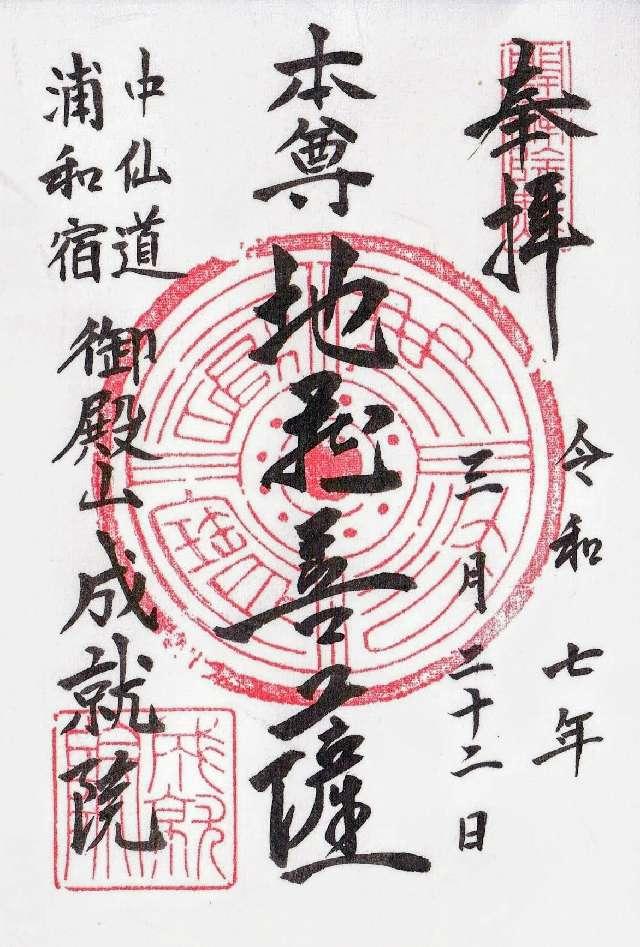 奉拝
令和七年
三月二十二日
本尊
地蔵菩薩
中仙道
浦和宿
御殿山成就院
成就院